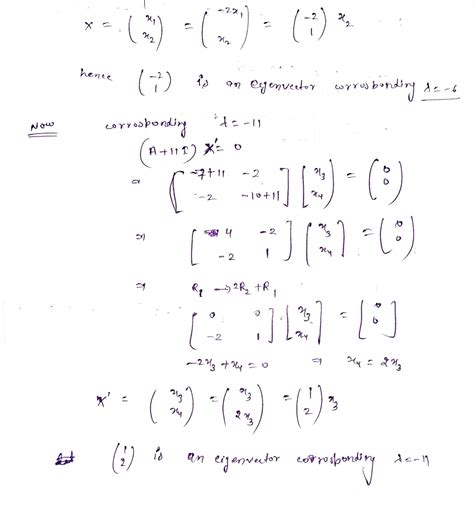 x = (x₁ x₂) = (-2x₁ x₂) = (-2 1) x₂
hence (-2 1) is an eigenvector corrosponding λ=-6
Now corrosponding λ=-11
(A+11I) X' = 0
⇒ [-7+11 -2; -2 -10+11] [x₃ x₄] = (0 0)
⇒ [4 -2; -2 1] [x₃ x₄] = (0 0)
⇒ R₁ → 2R₂ + R₁
[0 0; -2 1] [x₃ x₄] = [0 0]
-2x₃ + x₄ = 0 ⇒ x₄ = 2x₃
X' = (x₃ x₄) = (x₃ 2x₃) = (1 2) x₃
(1 2) is an eigenvector corrosponding λ=-11